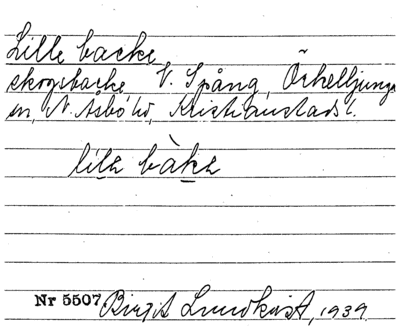 Lille backe
skogsbacke V. Spång, Örkelljunga
sn, N. Åsbo hd, Kristianstads l.
lilɛ bàkɛ
Nr 5507. Birgit Lundkvist, 1939